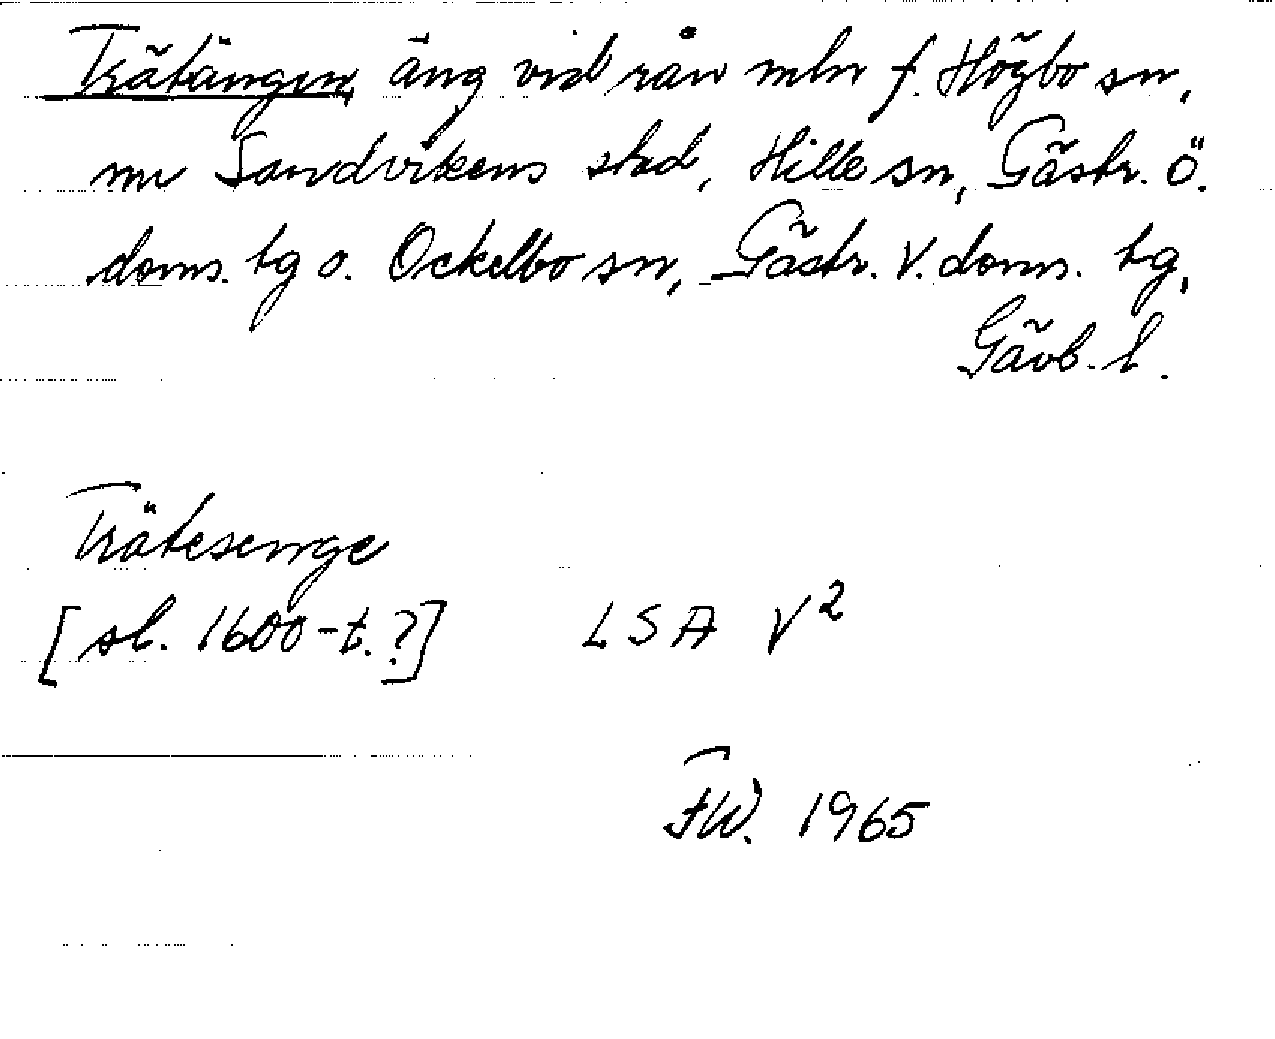 Trätängen, äng vid rån mln f. Högbo sn,
nu Sandvikens stad, Hille sn, Gästr. Ö.
doms. tg o. Ockelbo sn, Gästr. V. doms. tg,
Gävb. l.
Trätesenge
[sl. 1600-t.?] LSA V²
FW. 1965